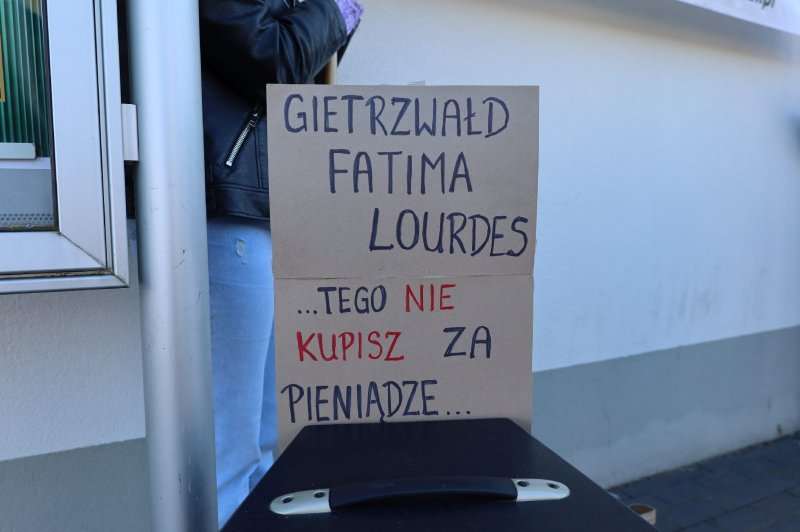 GIETRZWAŁD
FATIMA
LOURDES
...TEGO NIE
KUPISZ ZA
PIENIĄDZE...